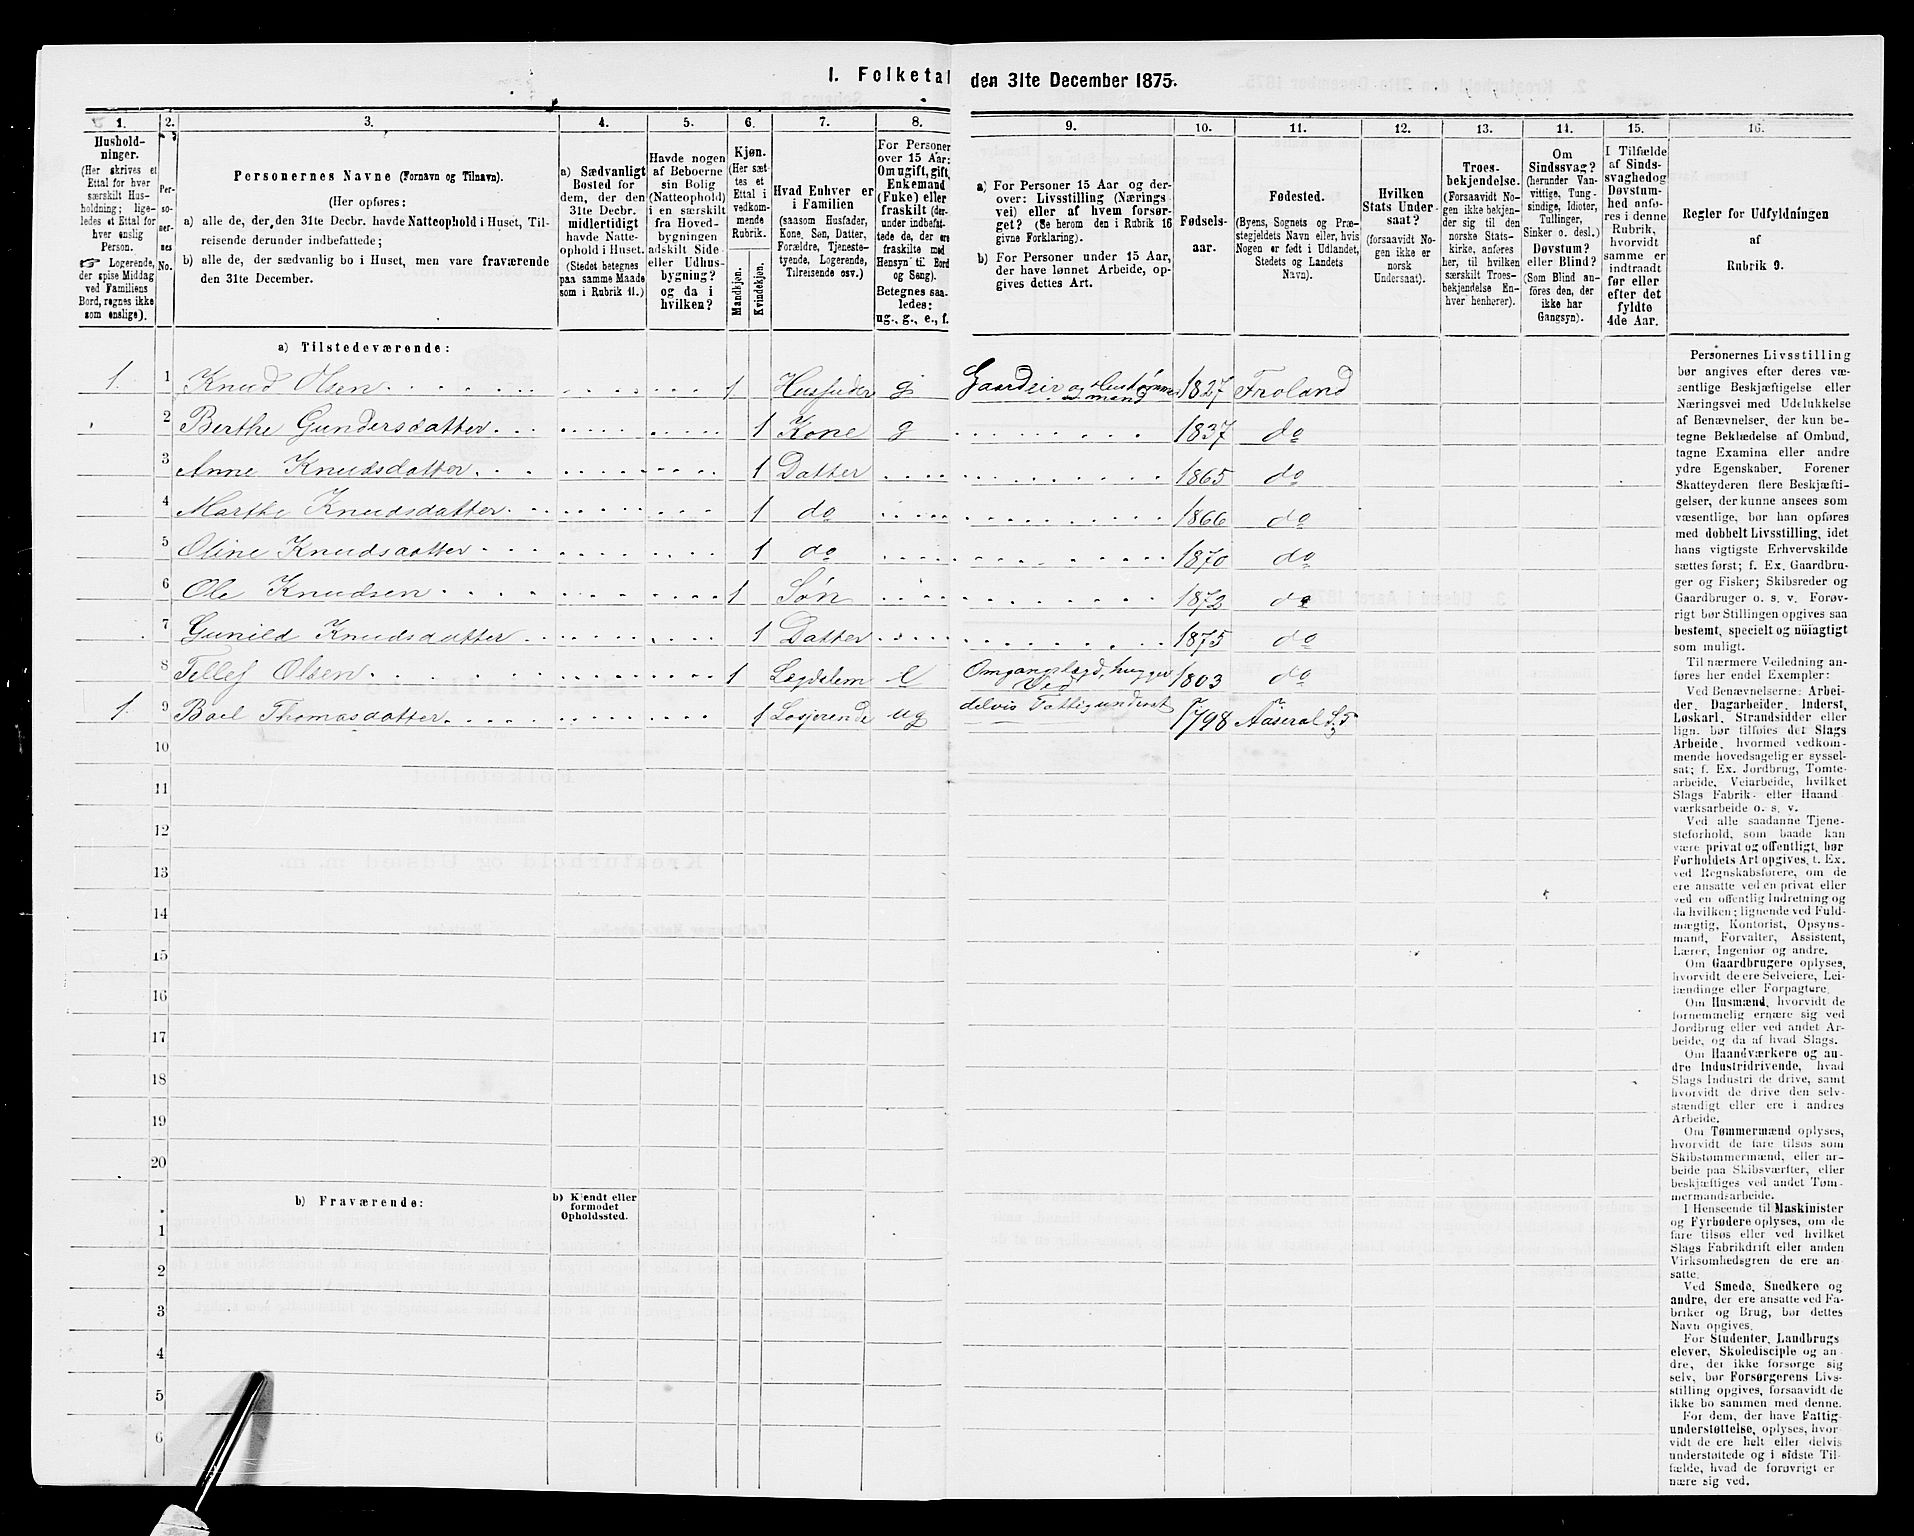 I. Folketal den 31te December 1875.
1. 2. 3. 4. 5. 6. 7. 8. 9. 10. 11. 12. 13. 14. 15. 16.
Husholdninger.
(Her skrives et Ettal for hver særskilt Husholdning; ligeledes et Ettal for hver enslig Person.
☞ Logerende, der spise Middag ved Familiens Bord, regnes ikke som enslige).
Personernes No.
Personernes Navne (Fornavn og Tilnavn).
(Her opføres:
a) alle de, der den 31te Decbr. havde Natteophold i Huset, Tilreisende derunder indbefattede;
b) alle de, der sædvanlig bo i Huset, men vare fraværende den 31te December.
a) Sædvanligt Bosted for dem, der den 31te Decbr. midlertidigt havde Natteophold i Huset.
(Stedet betegnes paa samme Maade som i Rubrik 11.)
Havde nogen af Beboerne sin Bolig (Natteophold) i en særskilt fra Hovedbygningen adskilt Side- eller Udhusbygning? og da i hvilken?
Kjøn.
(Her sættes et Ettal i vedkommende Rubrik.
Mandkjøn.
Kvindekjøn.
Hvad Enhver er i Familien
(saasom Husfader, Kone, Søn, Datter, Forældre, Tjenestetyende, Logerende, Tilreisende osv.)
For Personer over 15 Aar: Om ugift, gift, Enkemand (Enke) eller fraskilt (derunder indbefattede de, der ere fraskilte med Hensyn til Bord og Seng).
Betegnes saaledes: ug., g., e., f.
a) For Personer 15 Aar og derover: Livsstilling (Næringsvei) eller af hvem forsørget? (Se herom den i Rubrik 16 givne Forklaring).
b) For Personer under 15 Aar, der have lønnet Arbeide, opgives dettes Art.
Fødselsaar.
Fødested.
(Byens, Sognets og Præstegjeldets Navn eller, hvis Nogen er født i Udlandet, Stedets og Landets Navn).
Hvilken Stats Undersaat?
(forsaavidt Nogen ikke er norsk Undersaat).
Troesbekjendelse.
(Forsaavidt Nogen ikke bekjender sig til den norske Statskirke, anføres her, til hvilken særskilt Troesbekjendelse Enhver henhører).
Om Sindssvag? (herunder Vanvittige, Tungsindige, Idioter, Tullinger, Sinker o. desl.) Døvstum? eller Blind? (Som Blind anføres den, der ikke har Gangsyn).
I Tilfælde af Sindssvaghed og Døvstumhed anføres i denne Rubrik, hvorvidt samme er indtraadt før eller efter det fyldte 4de Aar.
Regler for Udfyldningen af Rubrik 9.
a) Tilstedeværende:
1. 1 Knud Olsen 1 Husfader g Gaardeier og Hustømmermand 1827 Froland
2 Berthe Gundersdatter 1 Kone g 1837 do
3 Anne Knudsdatter 1 Datter 1865 do
4 Marthe Knudsdatter 1 do 1866 do
5 Oline Knudsdatter 1 do 1870 do
6 Ole Knudsen 1 Søn 1872 do
7 Gunild Knudsdatter 1 Datter 1875 do
8 Tellef Olsen 1 Lægdelem e Omgangslægd, hugger Ved 1803 do
1. 9 Boel Thomasdatter 1 Losjerende ug delvis Fattigunderst 1798 Aaseral
10
11
12
13
14
15
16
17
18
19
20
b) Fraværende: b) Kjendt eller formodet Opholdssted.
1
2
3
4
5
6
Personernes Livsstilling
bør angives efter deres væ-
sentlige Beskjæftigelse eller
Næringsvei med Udelukkelse
af Benævnelser, der kun be-
tegne Beklædelse af Ombud,
tagne Examina eller andre
ydre Egenskaber. Forener
Skatteyderen flere Beskjæfti-
gelser, der kunne ansees som
væsentlige, bør han opføres
med dobbelt Livsstilling, idet
hans vigtigste Erhvervskilde
sættes først; f. Ex. Gaardbru-
ger og Fisker; Skibsreder og
Gaardbruger o. s. v. Forøv-
rigt bør Stillingen opgives saa
bestemt, specielt og nøiagtigt
som muligt.
Til nærmere Veiledning an-
føres her endel Exempler:
Ved Benævnelserne: Arbei-
der, Dagarbeider, Inderst,
Løskarl, Strandsidder eller
lign. bør tilføies det Slags
Arbeide, hvormed vedkom-
mende hovedsagelig er syssel-
sat; f. Ex. Jordbrug, Tomte-
arbeide, Veiarbeide, hvilket
Slags Fabrik- eller Haand
værksarbeide o. s. v.
Ved alle saadanne Tjene-
steforhold, som baade kan
være privat og offentligt, bør
Forholdets Art opgives, t. Ex.
ved Regnskabsførere, om de
ere ansatte ved en privat eller
ved en offentlig Indretning og
da hvilken; lignende ved Fuld-
mægtig, Kontorist, Opsyns-
mand, Forvalter, Assistent,
Lærer, Ingeniør og andre.
Om Gaardbrugere oplyses,
hvorvidt de ere Selveiere, Lei-
lændinge eller Forpagtere.
Om Husmænd, hvorvidt de
fornemmelig ernære sig ved
Jordbrug eller ved andet Ar-
beide, og da af hvad Slags.
Om Haandværkere og an-
dre Industridrivende, hvad
Slags Industri de drive, samt
hvorvidt de drive den selv-
stændigt eller ere i andres
Arbeide.
Om Tømmermænd oplyses,
hvorvidt de fare tilsøs som
Skibstømmermænd, eller ar-
beide paa Skibsværfter, eller
beskjæftiges ved andet Tøm-
mermandsarbeide.
I Henseende til Maskinister
og Fyrbødere oplyses, om de
fare tilsøs eller ved hvilket
Slags Fabrikdrift eller anden
Virksomhedsgren de ere an-
satte.
Ved Smede, Snedkere og
andre, der ere ansatte ved Fa-
briker og Brug, bør dettes
Navn opgives.
For Studenter, Landbrugs
elever, Skoledisciple og an-
dre, der ikke forsørge sig
selv, bør Forsørgerens Livs-
stilling opgives, forsaavidt de
ikke bo sammen med denne.
For dem, der have Fattig-
understøttelse, oplyses, hvor-
vidt de ere helt eller delvis
understøttede og i sidste Til-
fælde, hvad de forøvrigt er
nære sig ved.